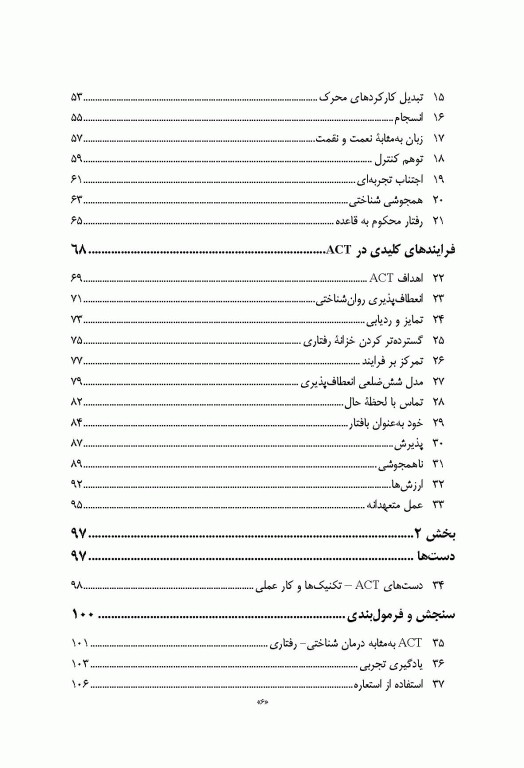 ۱۵ تبدیل کارکردهای محرک ........ ۵۳
۱۶ انسجام ........ ۵۵
۱۷ زبان به‌مثابهٔ نعمت و نقمت ........ ۵۷
۱۸ توهم کنترل ........ ۵۹
۱۹ اجتناب تجربه‌ای ........ ۶۱
۲۰ همجوشی شناختی ........ ۶۳
۲۱ رفتار محکوم به قاعده ........ ۶۵
فرایندهای کلیدی در ACT ........ ۶۸
۲۲ اهداف ACT ........ ۶۹
۲۳ انعطاف‌پذیری روان‌شناختی ........ ۷۱
۲۴ تمایز و ردیابی ........ ۷۳
۲۵ گسترده‌تر کردن خزانهٔ رفتاری ........ ۷۵
۲۶ تمرکز بر فرایند ........ ۷۷
۲۷ مدل شش‌ضلعی انعطاف‌پذیری ........ ۷۹
۲۸ تماس با لحظهٔ حال ........ ۸۲
۲۹ خود به‌عنوان بافتار ........ ۸۴
۳۰ پذیرش ........ ۸۷
۳۱ ناهمجوشی ........ ۸۹
۳۲ ارزش‌ها ........ ۹۲
۳۳ عمل متعهدانه ........ ۹۵
بخش ۲ ........ ۹۷
دست‌ها ........ ۹۷
۳۴ دست‌های ACT – تکنیک‌ها و کار عملی ........ ۹۸
سنجش و فرمول‌بندی ........ ۱۰۰
۳۵ ACT به‌مثابه درمان شناختی– رفتاری ........ ۱۰۱
۳۶ یادگیری تجربی ........ ۱۰۳
۳۷ استفاده از استعاره ........ ۱۰۶
«۶»